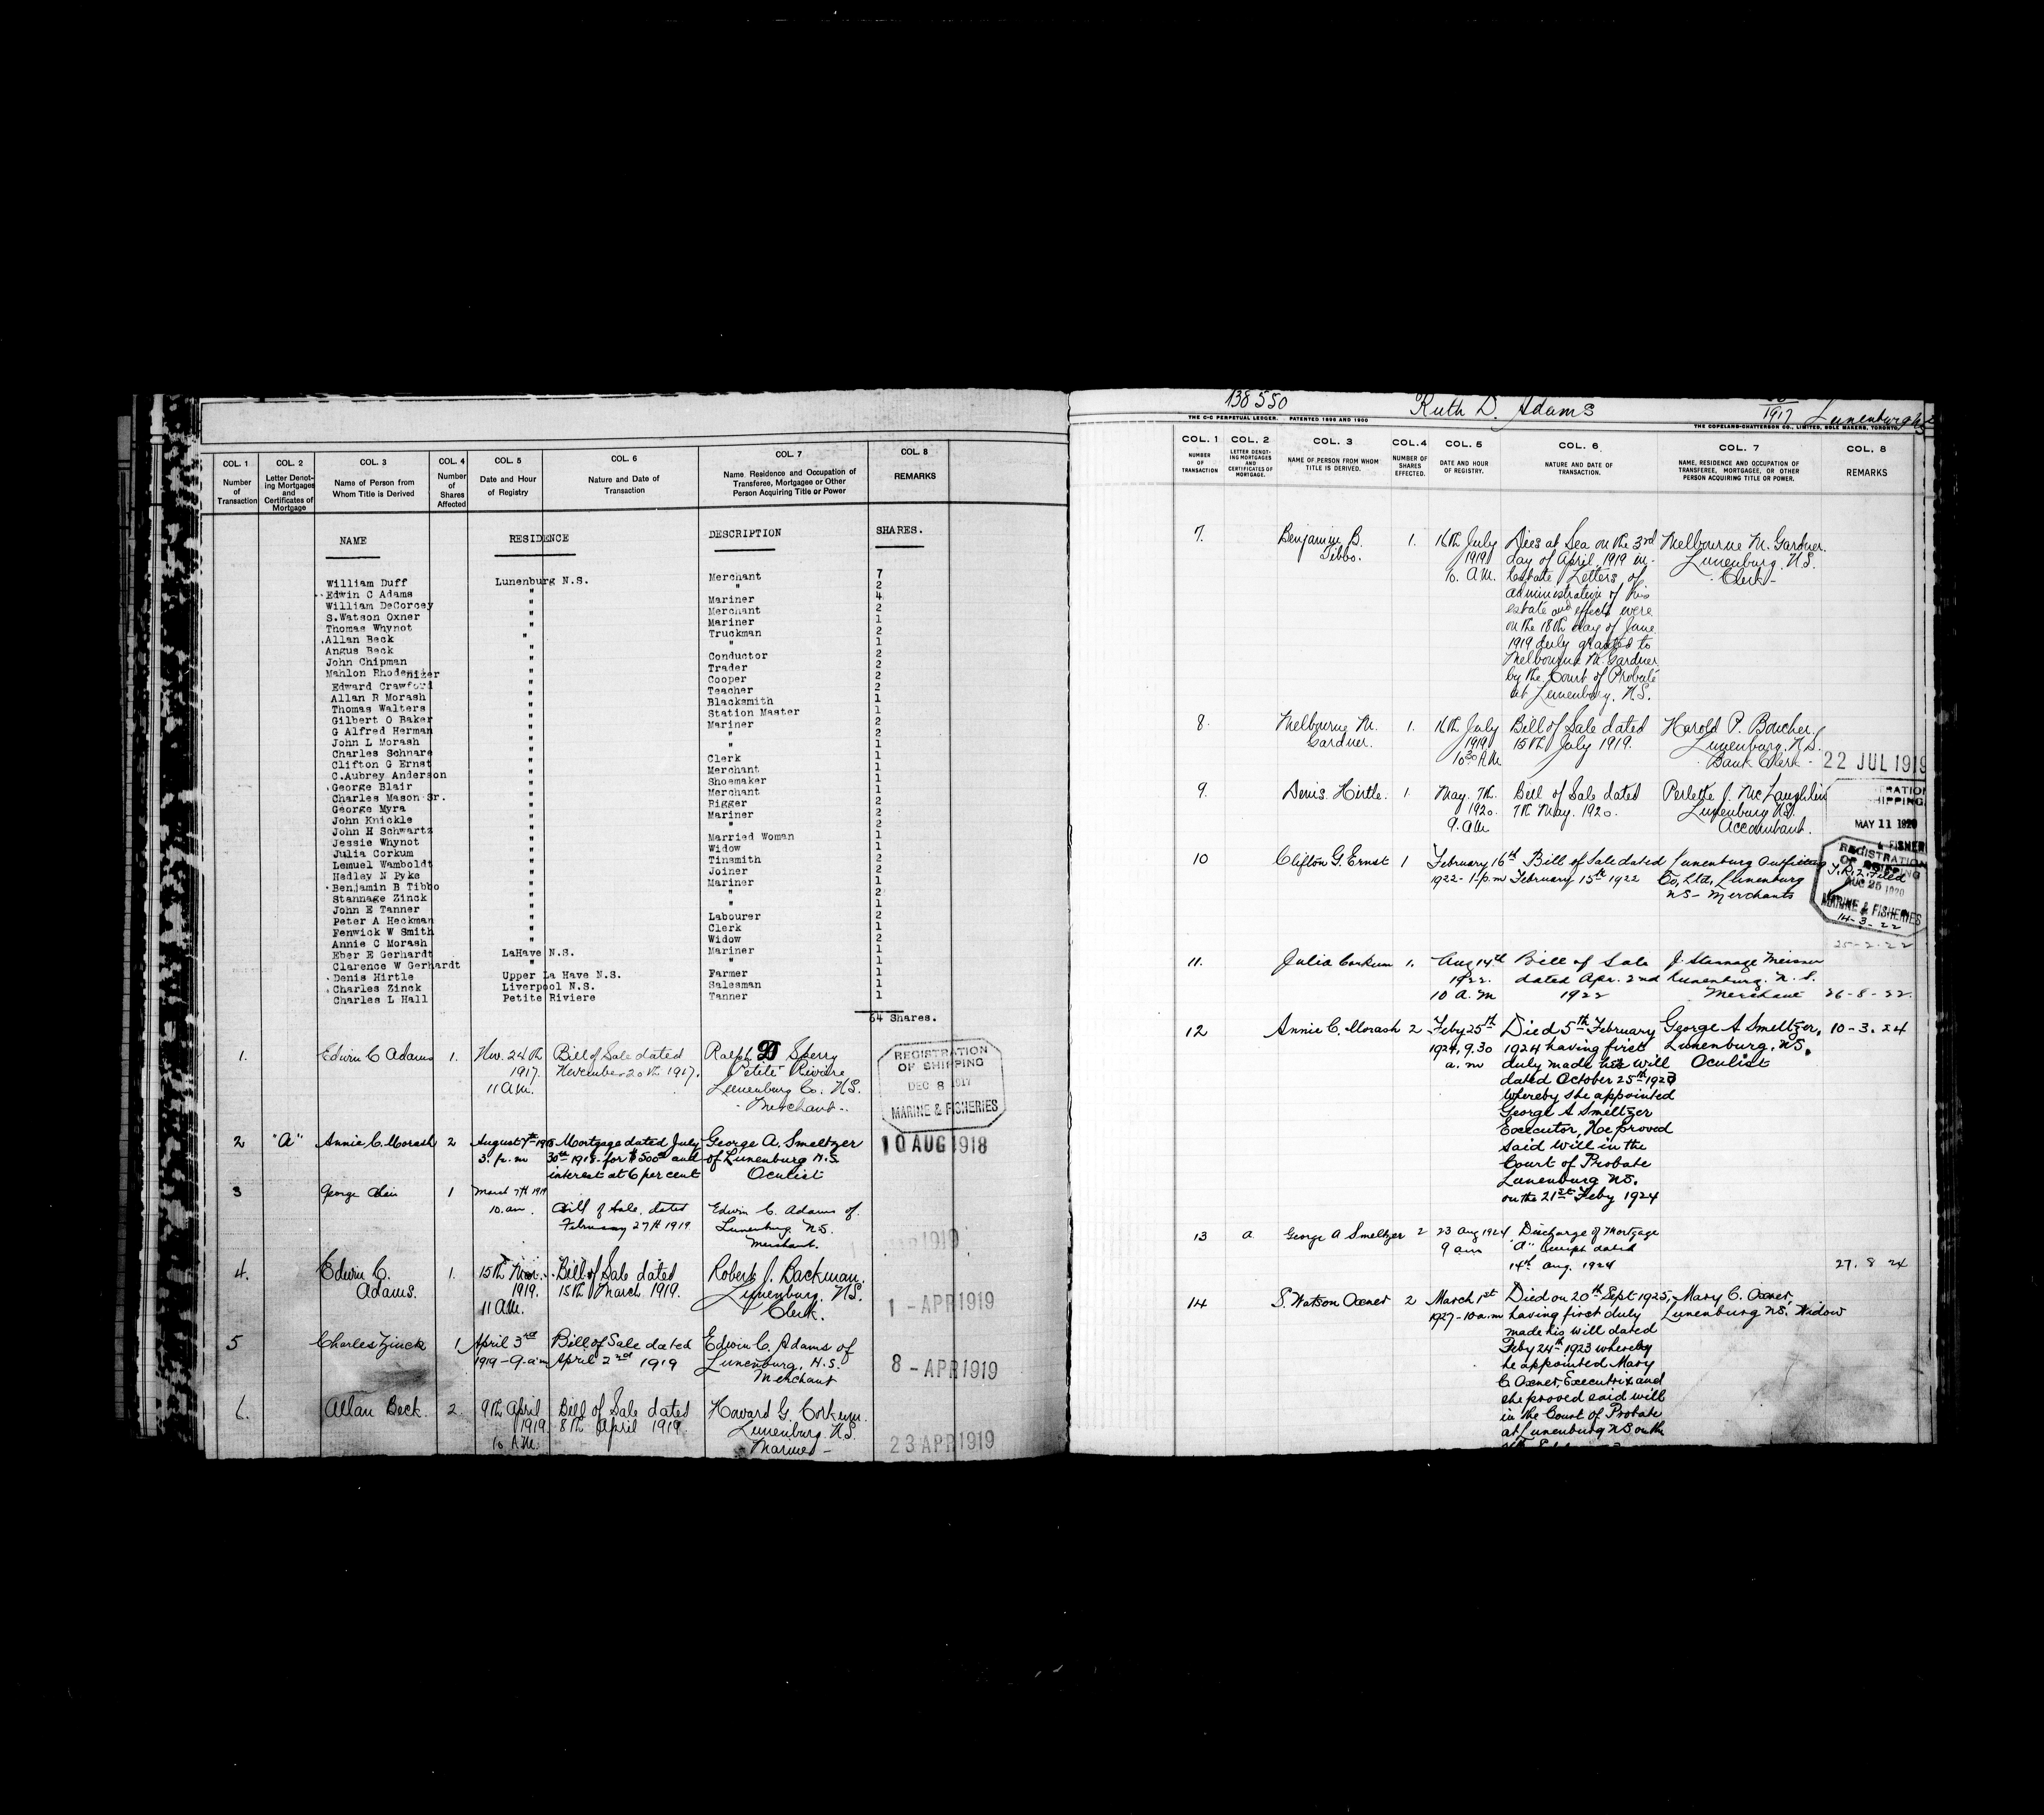 COL. 1 COL. 2 COL. 3 COL. 4 COL. 5 COL. 6 COL. 7 COL. 8
Number of Transaction
Letter Denoting Mortgages and Certificates of Mortgage
Name of Person from Whom Title is Derived
Number of Shares Affected
Date and Hour of Registry
Nature and Date of Transaction
Name Residence and Occupation of Transferee, Mortgagee or Other Person Acquiring Title or Power
REMARKS
NAME RESIDENCE DESCRIPTION SHARES.
William Duff Lunenburg N.S. Merchant 7
Edwin C Adams " " 2
William DeCorcey " Mariner 4
S.Watson Oxner " Merchant 2
Thomas Whynot " Mariner 1
Allan Beck " Truckman 2
Angus Beck " " 1
John Chipman " Conductor 2
Mahlon Rhodenizer " Trader 2
Edward Crawford " Cooper 2
Allan R Morash " Teacher 2
Thomas Walters " Blacksmith 1
Gilbert O Baker " Station Master 1
G Alfred Herman " Mariner 2
John L Morash " " 2
Charles Schnare " " 1
Clifton G Ernst " Clerk 1
C.Aubrey Anderson " Merchant 1
George Blair " Shoemaker 1
Charles Mason Sr. " Merchant 1
George Myra " Rigger 2
John Knickle " Mariner 2
John H Schwartz " " 2
Jessie Whynot " Married Woman 1
Julia Corkum " Widow 1
Lemuel Wamboldt " Tinsmith 2
Hedley N Pyke " Joiner 2
Benjamin B Tibbo " Mariner 1
Stannage Zinck " " 2
John E Tanner " " 1
Peter A Heckman " Labourer 2
Fenwick W Smith " Clerk 1
Annie C Morash " Widow 2
Eber E Gerhardt LaHave N.S. Mariner 1
Clarence W Gerhardt " " 1
Denis Hirtle Upper La Have N.S. Farmer 1
Charles Zinck Liverpool N.S. Salesman 1
Charles L Hall Petite Riviere Tanner 1
64 Shares.
1. Edwin C Adams 1. Nov. 24th Bill of Sale dated Ralph D Sperry
1917. November 20th 1917. Petite Riviere
11 A.M. Lunenburg Co. N.S.
- Merchant -
REGISTRATION
OF SHIPPING
DEC 8 1917
MARINE & FISHERIES
2 "A" Annie C. Morash 2 August 7th 1918 Mortgage dated July George A. Smeltzer
3. p.m 30th 1918 for $500 and of Lunenburg N.S.
interest at 6 per cent Oculist
10 AUG 1918
3 George Blair 1 March 7th 1919
10. am Bill of Sale, dated Edwin C. Adams of
February 27th 1919 Lunenburg. N.S.
Merchant.
1919
4. Edwin C. 1. 15th Mar. Bill of Sale dated Robert J. Backman.
Adams. 1919. 15th March 1919. Lunenburg. N.S.
11 A.M. Clerk.
1 - APR 1919
5 Charles Zinck 1 April 3rd Bill of Sale dated Edwin C. Adams of
1919 - 9. a.m April 2nd 1919 Lunenburg, N.S.
Merchant
8 - APR 1919
6. Allan Beck. 2. 9th April Bill of Sale dated Howard G. Corkum.
1919 8th April 1919. Lunenburg. N.S.
10 A.M. Mariner -
23 APR 1919
138550 Ruth D. Adams 1917 Lunenburg
THE C-C PERPETUAL LEDGER. PATENTED 1896 AND 1900
THE COPELAND-CHATTERSON CO., LIMITED, SOLE MAKERS, TORONTO
COL. 1 COL. 2 COL. 3 COL.4 COL. 5 COL. 6 COL. 7 COL. 8
NUMBER OF TRANSACTION
LETTER DENOTING MORTGAGES AND CERTIFICATES OF MORTGAGE.
NAME OF PERSON FROM WHOM TITLE IS DERIVED.
NUMBER OF SHARES EFFECTED.
DATE AND HOUR OF REGISTRY.
NATURE AND DATE OF TRANSACTION.
NAME, RESIDENCE AND OCCUPATION OF TRANSFEREE, MORTGAGEE, OR OTHER PERSON ACQUIRING TITLE OR POWER.
REMARKS
7. Benjamin B. 1. 16th July Dies at Sea on the 3rd Melbourne M. Gardner.
Tibbo. 1919 day of April, 1919 in- Lunenburg. N.S.
10. A.M. testate Letters of - Clerk -
administration of his
estate and effects were
on the 18th day of June
1919 duly granted to
Melbourne M. Gardner
by the Court of Probate
at Lunenburg. N.S.
8. Melbourne M. 1. 16th July Bill of Sale dated Harold P. Boucher.
Gardner. 1919 15th July 1919. Lunenburg. N.S.
10 30 A.M. Bank Clerk -
22 JUL 1919
9. Denis. Hirtle. 1 May. 7th. Bill of Sale dated Perlette J. McLaughlin
1920. 7th May. 1920. Lunenburg N.S.
9. a.m Accountant.
MAY 11 1920
10 Clifton G. Ernst 1 February 16th Bill of Sale dated Lunenburg Outfitting
1922 - 1-p.m February 15th 1922 Co, Ltd, Lunenburg
N.S - Merchants
REGISTRATION
OF SHIPPING
AUG 25 1920
MARINE & FISHERIES
14-3-22
25-2-22
11. Julia Corkum 1. Aug 14th Bill of Sale J. Stannage Meisner
1922. dated Apr. 2nd Lunenburg. N. S.
10 A. M 1922 Merchant 26-8-22.
12 Annie C. Morash 2 Feby 25th Died 5th February George A Smeltzer, 10-3.24
1924, 9.30 1924 having first Lunenburg, N.S,
a. m duly made her will Oculist
dated October 25th 1923
whereby she appointed
George A Smeltzer
Executor, He proved
said will in the
Court of Probate
Lunenburg N.S.
on the 21st Feby 1924
13 a George A Smeltzer 2 23 Aug 1924 Discharge of Mortgage
9 am "A" Receipt dated
14th Aug. 1924 27. 8 24
14 S. Watson Oxner 2 March 1st Died on 20th Sept 1925, Mary C. Oxner,
1927-10 a.m having first duly Lunenburg N.S, Widow
made his will dated
Feby 24th 1923 whereby
he appointed Mary
C. Oxner, Executrix and
she proved said will
in the Court of Probate
at Lunenburg N S on the